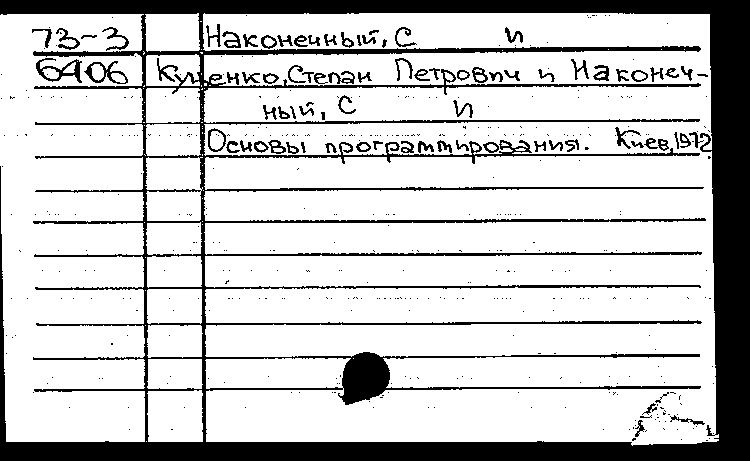 73-3 Наконечный, С И
6406 Куценко, Степан Петрович и Наконеч-
ный, С И
Основы программирования. Киев, 1972